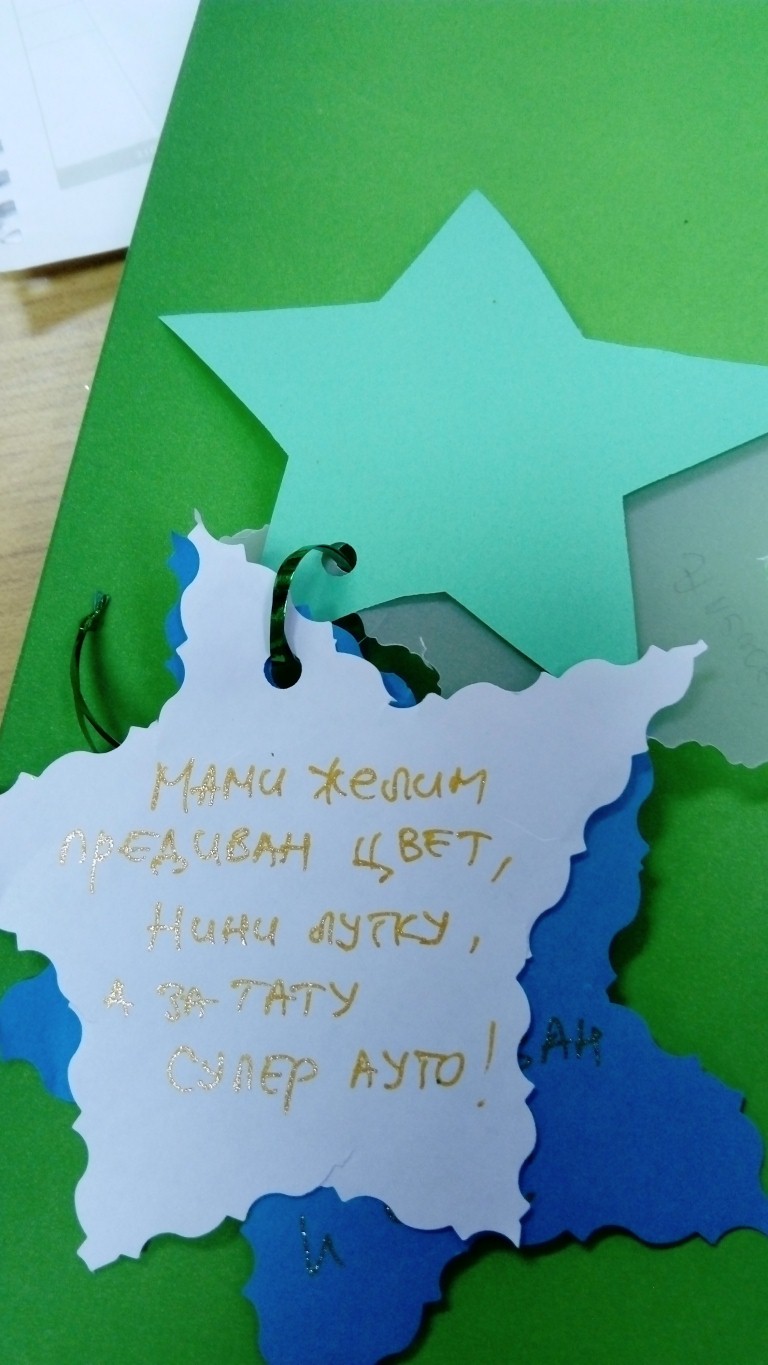 Мами желим
предиван цвет,
Нини лутку,
а за тату
супер ауто!
и